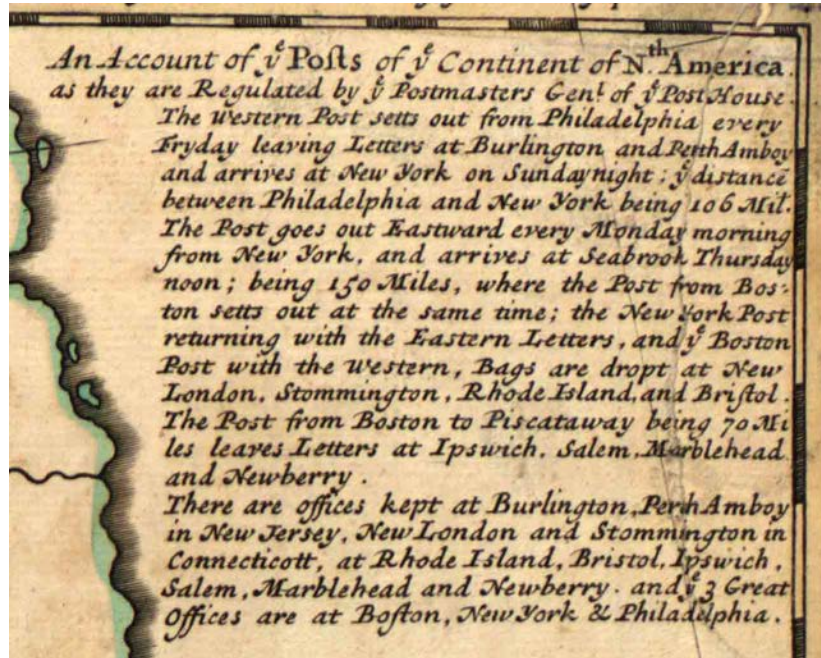 An Account of yᵉ Poſts of yᵉ Continent of N.ᵗʰ America.
as they are Regulated by yᵉ Postmasters Genˡ. of yᵉ Post House.
The Western Post setts out from Philadelphia every
Fryday leaving Letters at Burlington and Perth Amboy
and arrives at New York on Sunday night; yᵉ distancē
between Philadelphia and New York being 106 Mil.
The Post goes out Eastward every Monday morning
from New York, and arrives at Seabrook Thursday
noon; being 150 Miles, where the Post from Bos-
ton setts out at the same time; the New York Post
returning with the Eastern Letters, and yᵉ Boston
Post with the Western, Bags are dropt at New
London, Stommington, Rhode Island, and Briſtol.
The Post from Boston to Piscataway being 70 Mi
les leaves Letters at Ipswich, Salem, Marblehead
and Newberry.
There are offices kept at Burlington, Perth Amboy
in New Jersey, New London and Stommington in
Connecticott, at Rhode Island, Bristol, Ipswich,
Salem, Marblehead and Newberry. and yᵉ 3 Great
Offices are at Boſton, New York & Philadelphia.